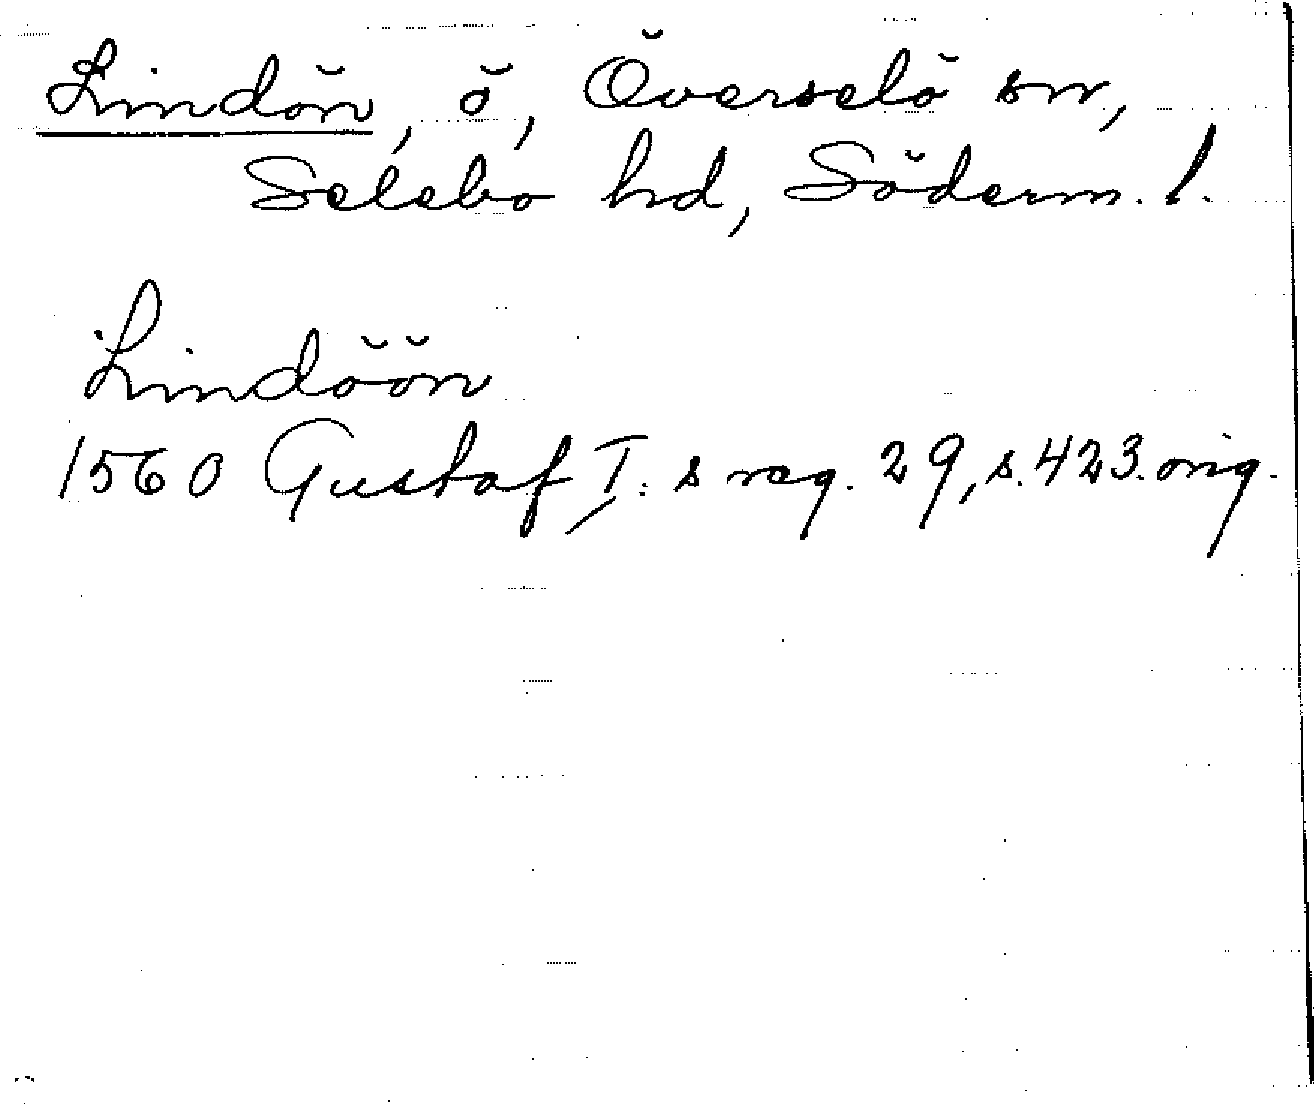 Lindön, ö, Överselö sn,
Selebo hd, Söderm. l.
Lindöön
1560 Gustaf I:s reg. 29, s. 423. orig.